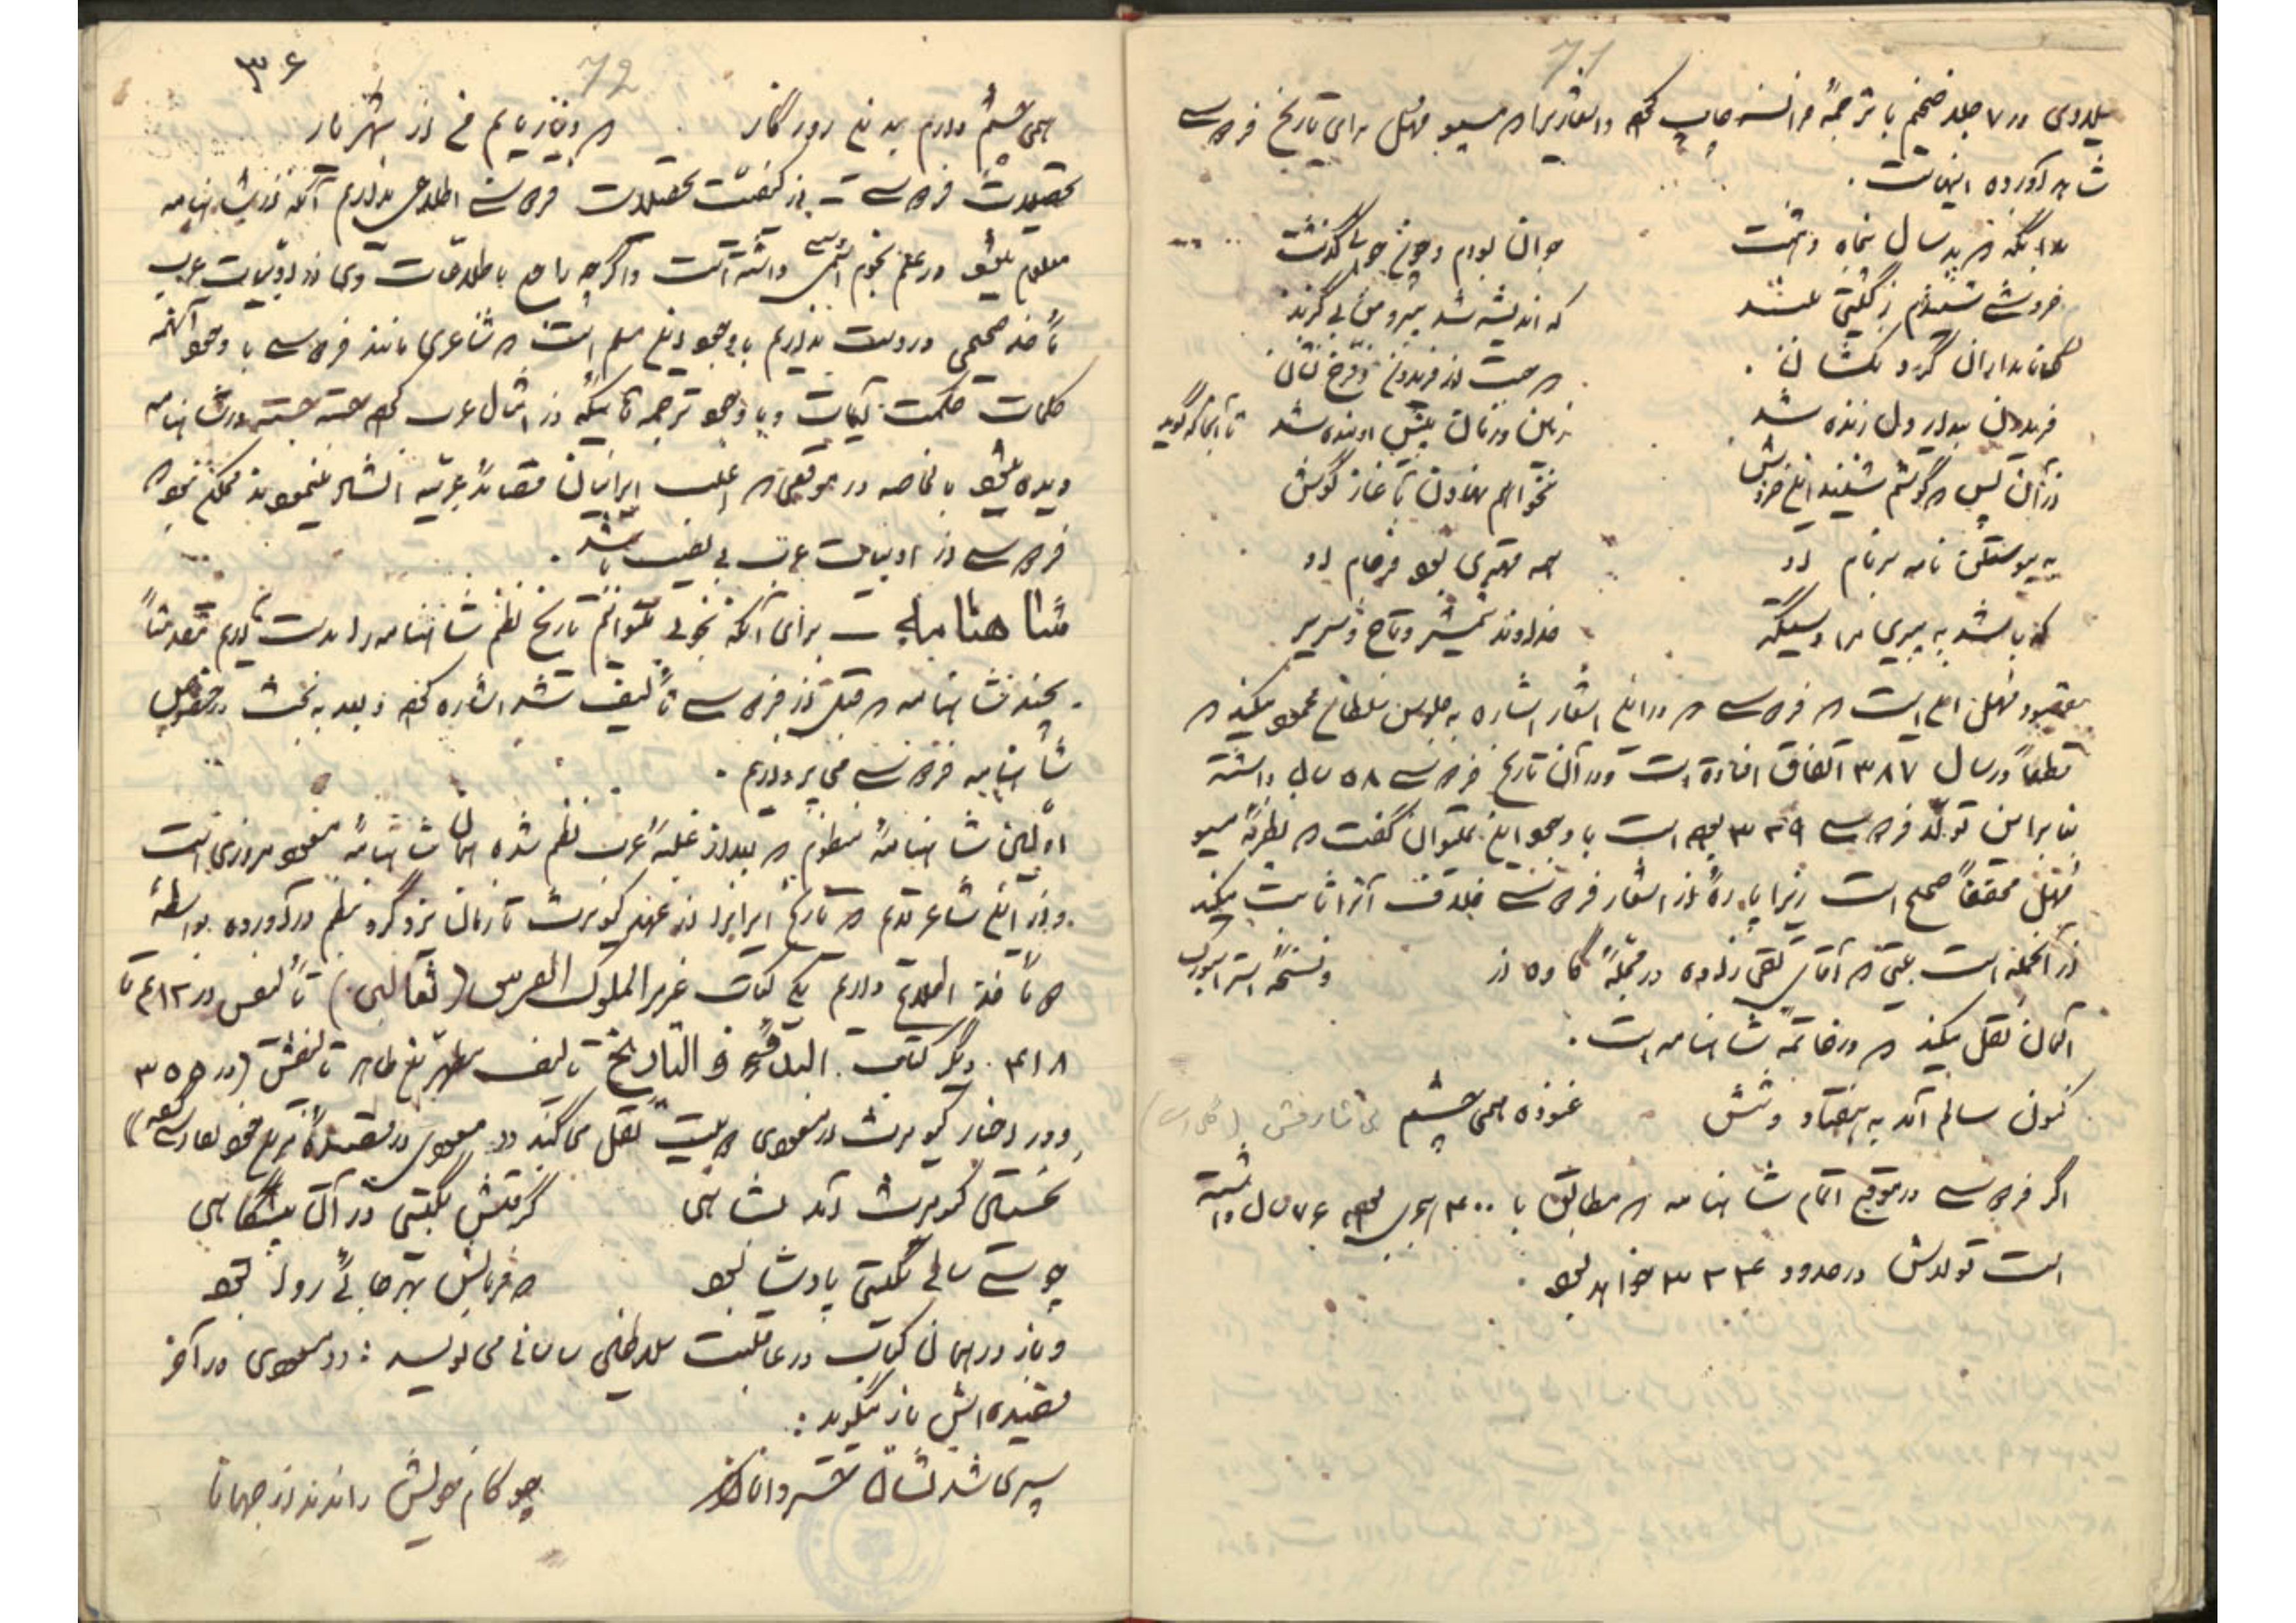 71
میلادی در ۷ جلد ضخیم با ترجمهٔ فرانسه چاپ کرد و اشعاریرا که مسیو مهل برای تاریخ فردوسی
شاهد آورده اینهاست.
بدانگه که بد سال پنجاه و هشت جوان بودم و چون جوانی گذشت
خروشی شنیدم ز گیتی بلند که اندیشه شد پیر و من بی گزند
که ای نامداران گردنکشان که جست از فریدون فرخ نشان
فریدون بیدار دل زنده شد زمین و زمان پیش او بنده شد تا آنجا که گوید
از آن پس که گوشم شنید این خروش نخواهم نهادن به آغاز گوش
به پیوستم این نامه بر نام او همه مهتری بود فرجام او
که باشد به پیری مرا دستگیر خداوند شمشیر و تاج و سریر
مقصود مهل این است که فردوسی که در این اشعار اشاره به جلوس سلطان محمود میکند که
قطعاً در سال ۳۸۷ اتفاق افتاده است و در آن تاریخ فردوسی ۵۸ سال داشته
بنابراین تولد فردوسی ۳۲۹ بوده است با وجود این نمیتوان گفت که نظریهٔ مسیو
مهل محققاً صحیح است زیرا پارهٔ از اشعار فردوسی خلاف آنرا ثابت میکند
از آنجمله است بیتی که آقای تقی زاده در مجلهٔ کاوه از و نسخهٔ استراسبورگ
آلمان نقل میکند که در خاتمهٔ شاهنامه است.
کنون سالم آمد به هفتاد و شش غنوده همی چشم
اگر فردوسی در موقع اتمام شاهنامه که مطابق با ۴۰۰ هجری بوده ۷۶ سال داشته
است تولدش در حدود ۳۲۴ خواهد بود.
72
۳۶
همی چشم دارم بدین روزگار که دینار یابم من از شهریار
تحصیلات فردوسی ـ از کیفیت تحصیلات فردوسی اطلاعی نداریم آنکه از شاهنامه
معلوم میشود در علم نجوم دستی داشته است و اگرچه راجع باطلاعات وی از ادبیات عرب
مأخذ صحیحی در دست نداریم با وجود این مسلم است که شاعری مانند فردوسی با وجود آنهمه
کلمات حکمت آیات و با وجود ترجمه هائیکه از امثال عرب کرده جسته جسته در شاهنامه
دیده میشود بالخاصه در موقعی که اغلب ایرانیان قصاید عربیه انشاد مینمودند ممکن نبود که
فردوسی از ادبیات عرب بی نصیب باشد.
شاهنامه ـ برای آنکه بخوبی بتوانیم تاریخ نظم شاهنامه را بدست آوریم مقدمتاً
بچند شاهنامه که قبل از فردوسی تألیف شد اشاره کرده و بعد به بحث در خصوص
شاهنامه فردوسی می پردازیم.
اولین شاهنامهٔ منظوم که بعد از غلبهٔ عرب نظم شده همان شاهنامهٔ مسعود مروزی است
و از این شاعر قدیم که تاریخ ایرانرا از عهد کیومرث تا زمان یزدگرد بنظم در آورده بواسطهٔ
دو مأخذ اطلاع داریم یکی کتاب غرر الملوک الفرس (ثعالبی) تألیفش در ۴۱۲ تا
۴۱۸ دیگر کتاب البدء و التاریخ تألیف مطهر بن طاهر تألیفش (در ۳۵۵
و در اخبار کیومرث از مسعودی دو بیت نقل می کند «مسعودی در قصیدهٔ
نخستین کیومرث آمد بشاهی گرفتش بگیتی در آن پیشگاهی
چو سی سالی بگیتی پادشا بود که فرمانش بهر جائی روا بود
و باز در همان کتاب در عاقبت سلاطین ساسانی می نویسد: «مسعودی در آخر
قصیده اش باز میگوید:
سپری شد نشان خسروانا چو کام خویش راندند از جهانا